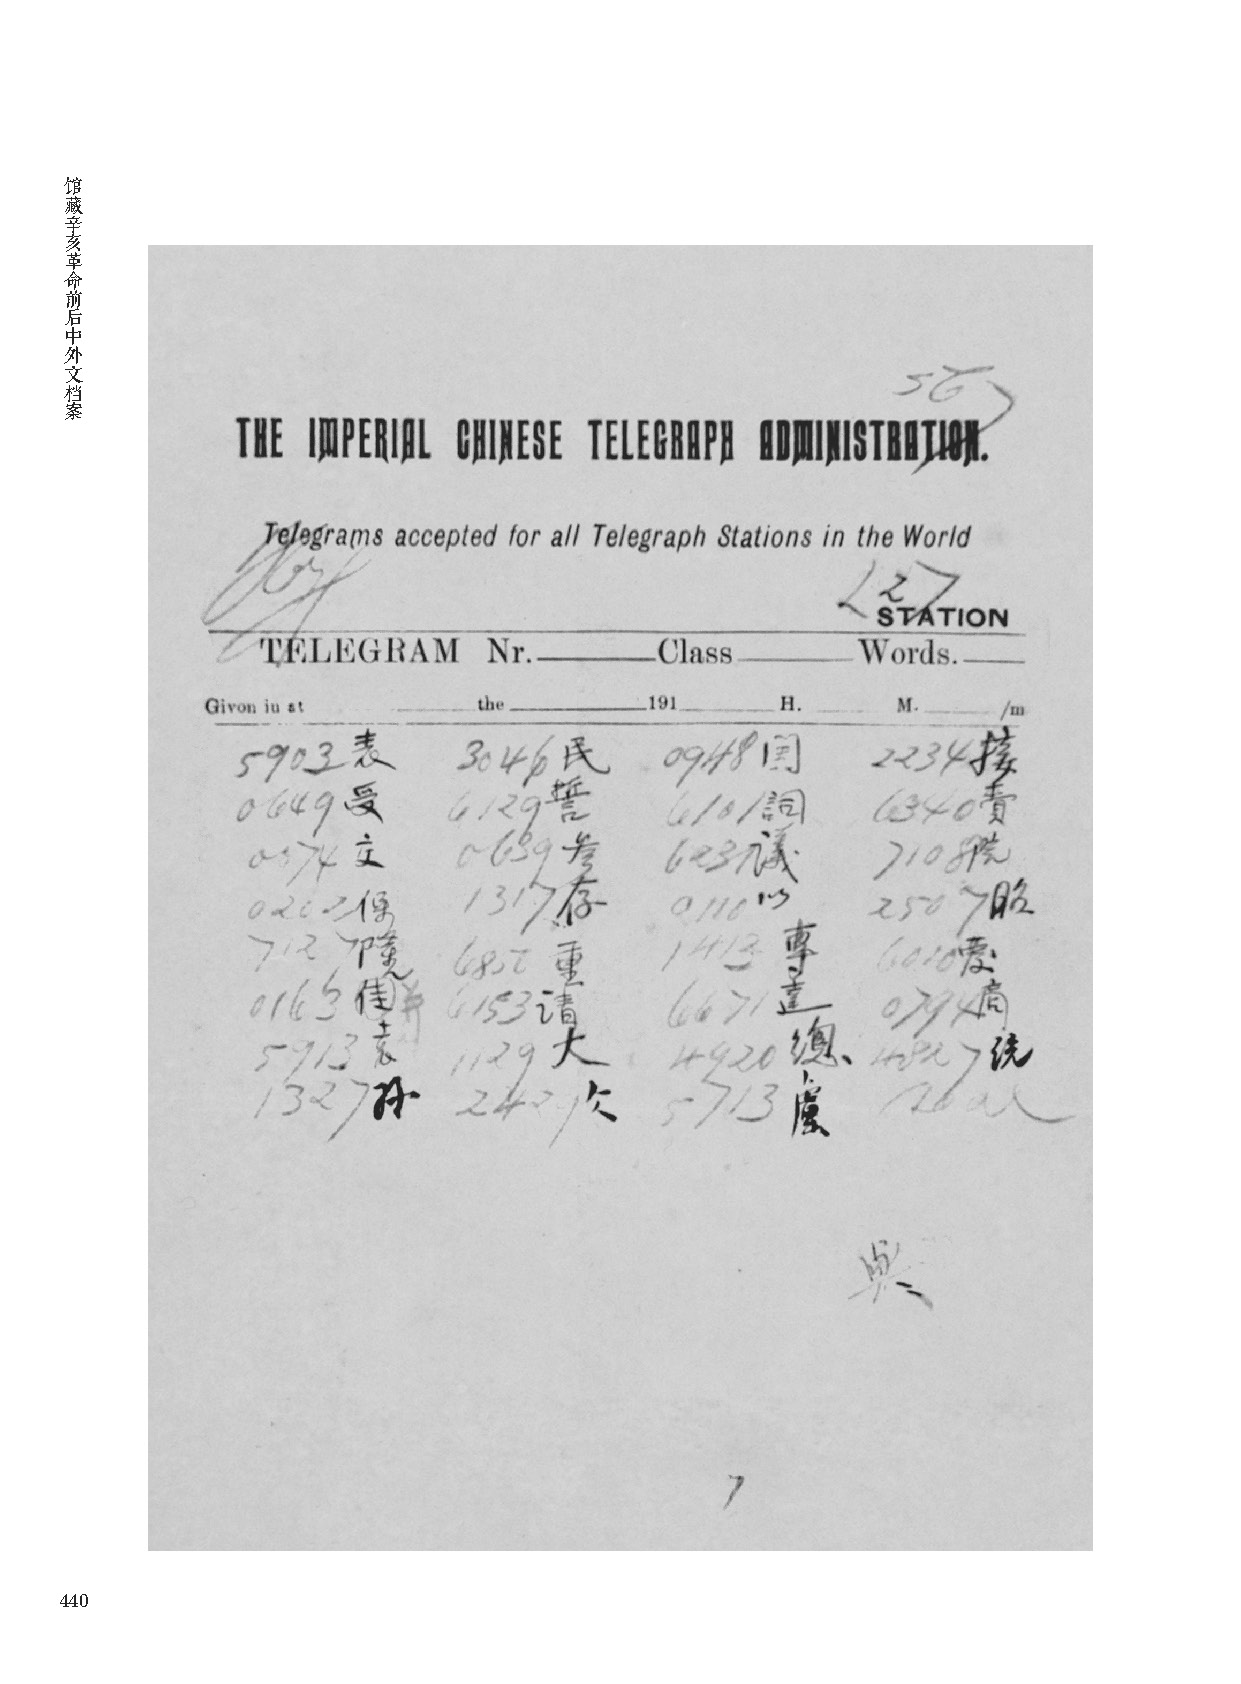 馆藏辛亥革命前后中外文档案
567
THE IMPERIAL CHINESE TELEGRAPH ADMINISTRATION.
Telegrams accepted for all Telegraph Stations in the World
STATION
TELEGRAM Nr. Class Words.
Givon iu at the 191 H. M. /m
5903 表 3046 民 0948 国 2234 接
0649 受 6129 誓 6101 詞 6340 賣
0574 文 0639 参 6231 議 7108 院
0202 保 1317 存 0110 以 2507 昭
7127 隆 6850 重 1413 專 6010
0163 佳 6153 请 6671 達 0794 商
5913 1129 大 4920 總 4827 统
1327 孙 2429 欠 5713
7
440